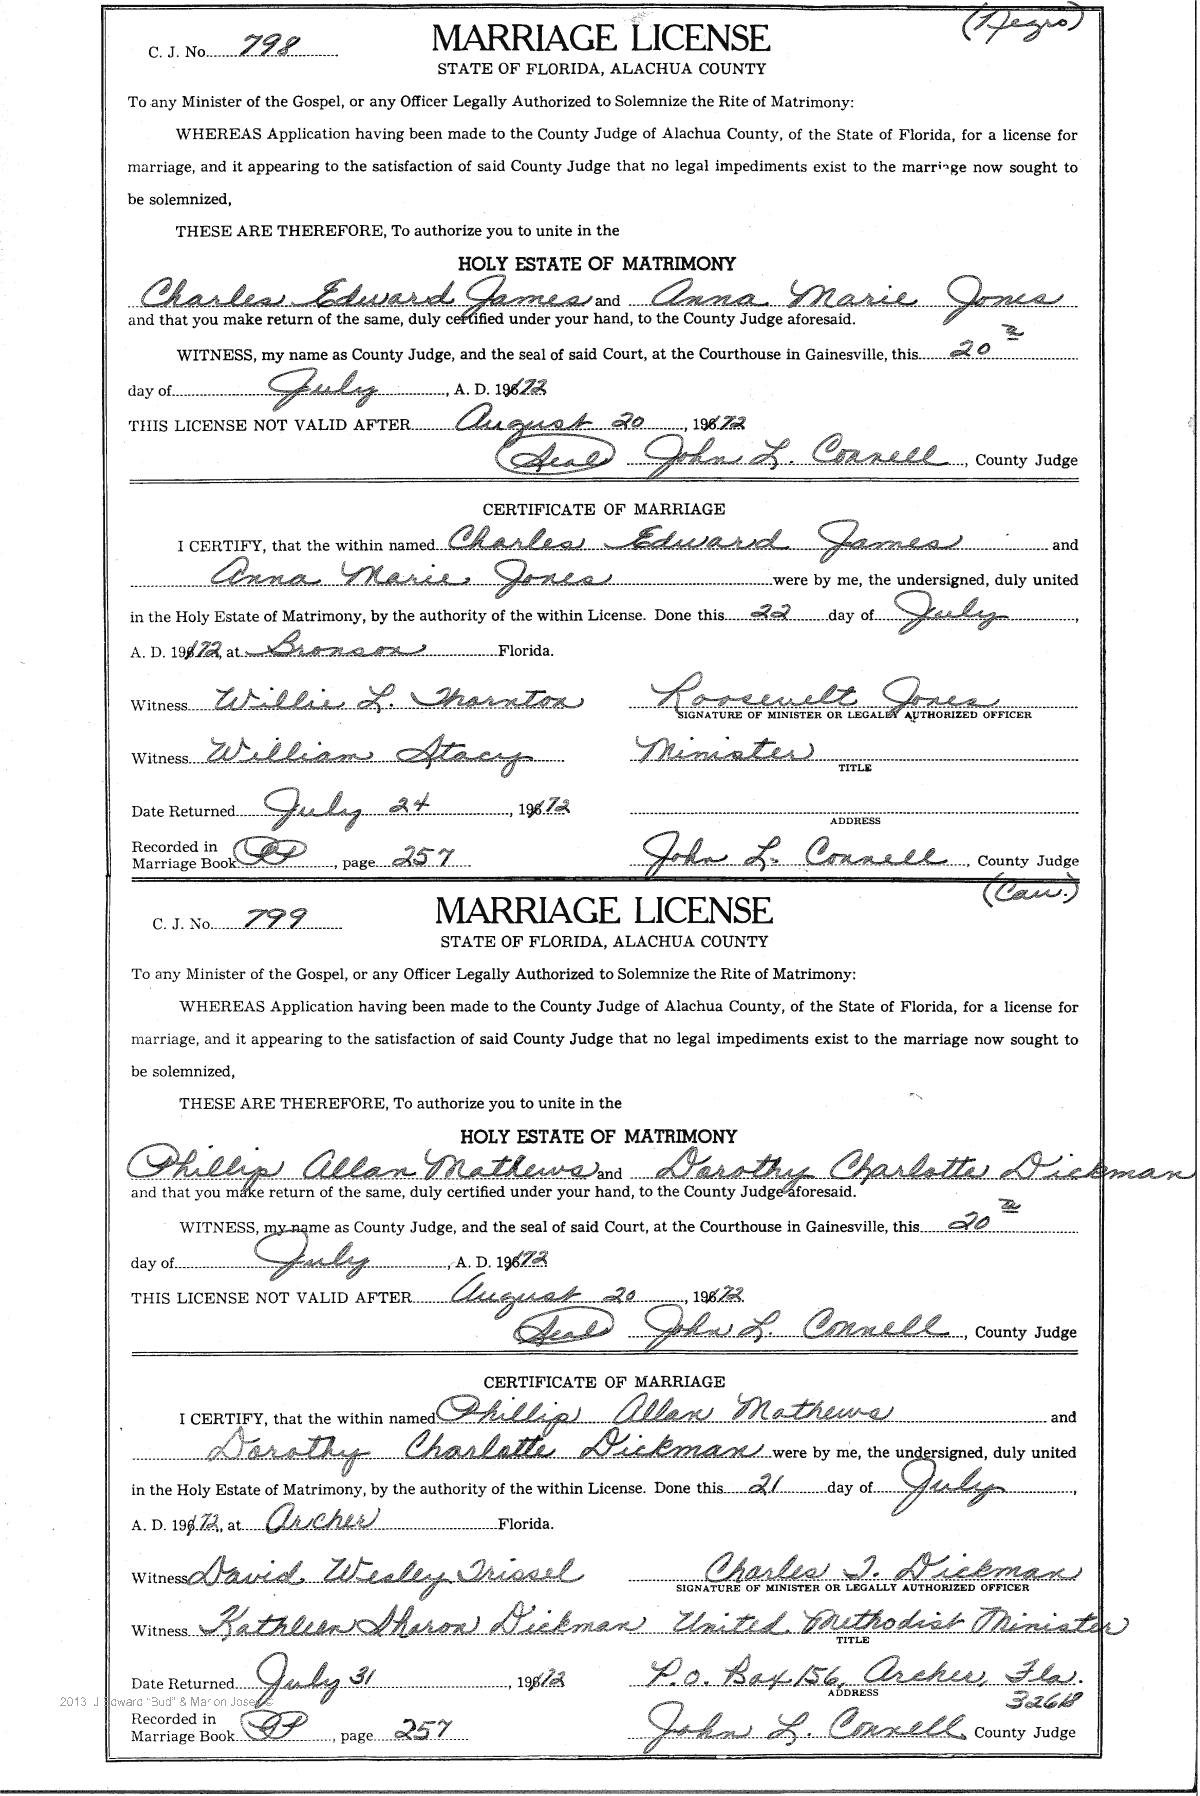 (Negro)
C. J. No. 798 MARRIAGE LICENSE
STATE OF FLORIDA, ALACHUA COUNTY
To any Minister of the Gospel, or any Officer Legally Authorized to Solemnize the Rite of Matrimony:
WHEREAS Application having been made to the County Judge of Alachua County, of the State of Florida, for a license for
marriage, and it appearing to the satisfaction of said County Judge that no legal impediments exist to the marriage now sought to
be solemnized,
THESE ARE THEREFORE, To authorize you to unite in the
HOLY ESTATE OF MATRIMONY
Charles Edward James and Anna Marie Jones
and that you make return of the same, duly certified under your hand, to the County Judge aforesaid.
WITNESS, my name as County Judge, and the seal of said Court, at the Courthouse in Gainesville, this 20th
day of July, A. D. 1972
THIS LICENSE NOT VALID AFTER August 20, 1972
(Seal) John L. Connell, County Judge
CERTIFICATE OF MARRIAGE
I CERTIFY, that the within named Charles Edward James and
Anna Marie Jones were by me, the undersigned, duly united
in the Holy Estate of Matrimony, by the authority of the within License. Done this 22 day of July,
A. D. 1972, at Bronson Florida.
Witness Willie L. Thornton Roosevelt Jones
SIGNATURE OF MINISTER OR LEGALLY AUTHORIZED OFFICER
Witness William Stacy Minister
TITLE
Date Returned July 24, 1972
ADDRESS
Recorded in
Marriage Book, page 257 John L. Connell, County Judge
(Cau.)
C. J. No. 799 MARRIAGE LICENSE
STATE OF FLORIDA, ALACHUA COUNTY
To any Minister of the Gospel, or any Officer Legally Authorized to Solemnize the Rite of Matrimony:
WHEREAS Application having been made to the County Judge of Alachua County, of the State of Florida, for a license for
marriage, and it appearing to the satisfaction of said County Judge that no legal impediments exist to the marriage now sought to
be solemnized,
THESE ARE THEREFORE, To authorize you to unite in the
HOLY ESTATE OF MATRIMONY
Phillip Allan Mathews and Dorothy Charlotte Dickman
and that you make return of the same, duly certified under your hand, to the County Judge aforesaid.
WITNESS, my name as County Judge, and the seal of said Court, at the Courthouse in Gainesville, this 20th
day of July, A. D. 1972
THIS LICENSE NOT VALID AFTER August 20, 1972
(Seal) John L. Connell, County Judge
CERTIFICATE OF MARRIAGE
I CERTIFY, that the within named Phillip Allan Mathews and
Dorothy Charlotte Dickman were by me, the undersigned, duly united
in the Holy Estate of Matrimony, by the authority of the within License. Done this 21 day of July,
A. D. 1972, at Archer Florida.
Witness David Wesley Trissel Charles T. Dickman
SIGNATURE OF MINISTER OR LEGALLY AUTHORIZED OFFICER
Witness Kathleen Sharon Dickman United Methodist Minister
TITLE
Date Returned July 31, 1972 P.O. Box 156, Archer, Fla.
ADDRESS 32618
2013 J Edward "Bud" & Marion Josep
Recorded in
Marriage Book, page 257 John L. Connell County Judge